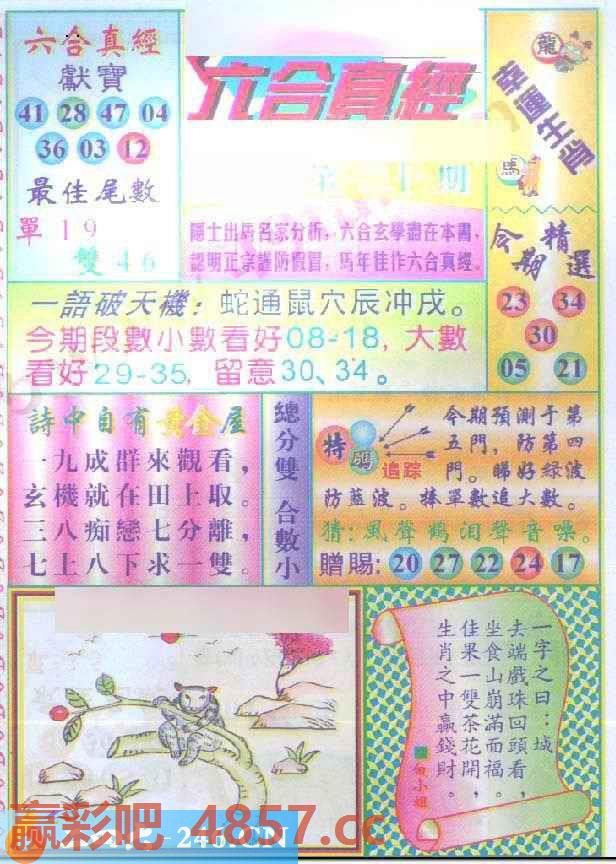 六合真經
獻寶
41 28 47 04
36 03 12
最佳尾數
單19
雙46
六合真經
期
龍
幸運生肖
馬
隱士出馬名家分析，六合玄學盡在本書，
認明正宗謹防假冒，馬年佳作六合真經。
今期精選
23 34
30
05 21
一語破天機：蛇通鼠穴辰冲戌。
今期段數小數看好08-18，大數
看好29-35，留意30、34。
詩中自有黃金屋
一九成群來觀看，
玄機就在田上取。
三八痴戀七分離，
七上八下求一雙。
總分雙 合數小
特碼
追踪
今期預測于第
五門，防第四
門。睇好綠波
防藍波。捧單數追大數。
猜：風聲鶴泪聲音噪。
贈賜：20 27 22 24 17
一字之曰：城
去端戲珠回頭看，
坐食山崩滿而福。
佳果一雙茶花開，
生肖之中贏錢財。
小姐
赢彩吧 4857.cc
246.CN